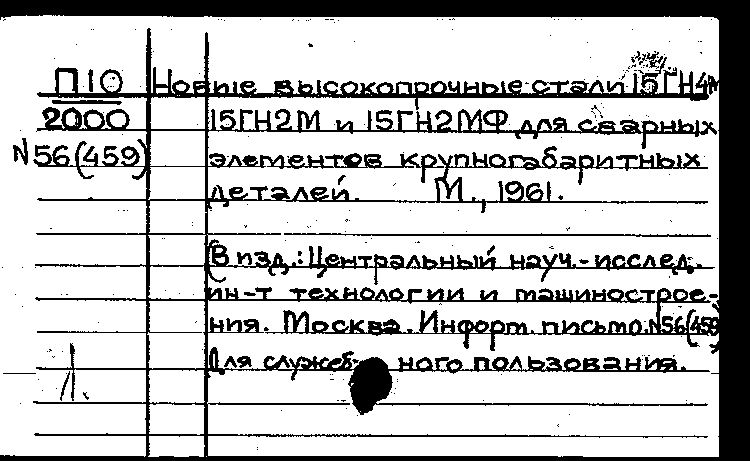 П10 Новые высокопрочные стали 15ГН4М
2000 15ГН2М и 15ГН2МФ для сварных
N56(459) элементов крупногабаритных
деталей. М., 1961.
(В изд.: Центральный науч.-исслед.
ин-т технологии и машинострое-
ния. Москва. Информ. письмо. N56(459)
Для служеб- ного пользования.
1.